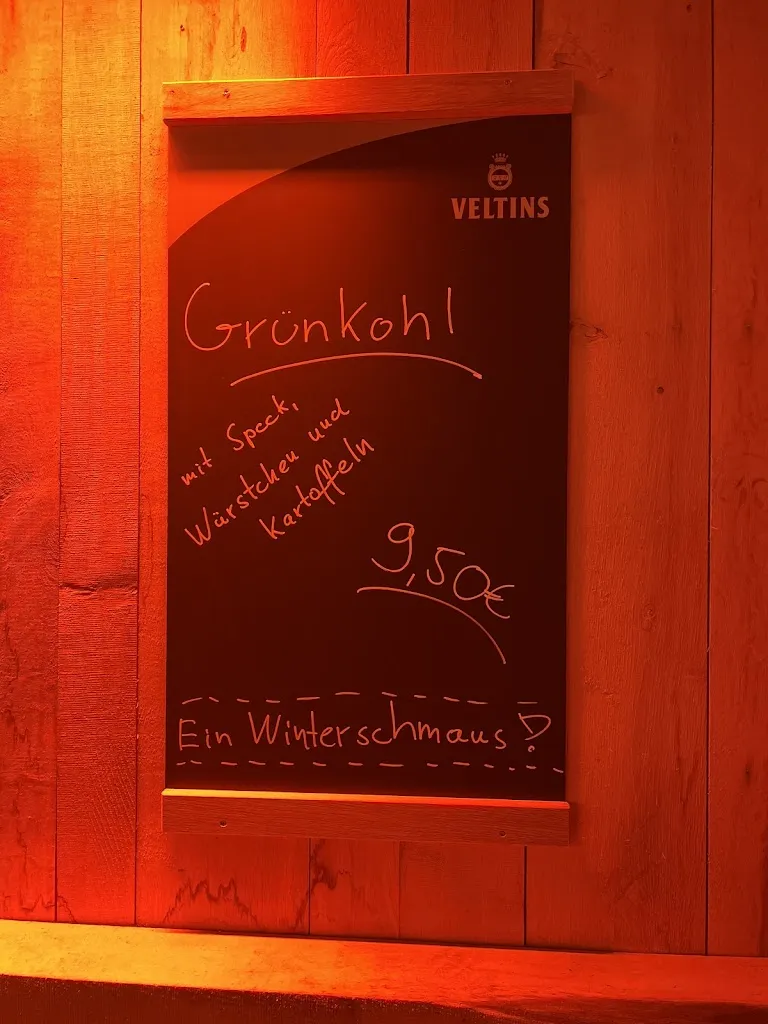 VELTINS
Grünkohl
mit Speck,
Würstchen und
Kartoffeln
9,50€
Ein Winterschmaus!